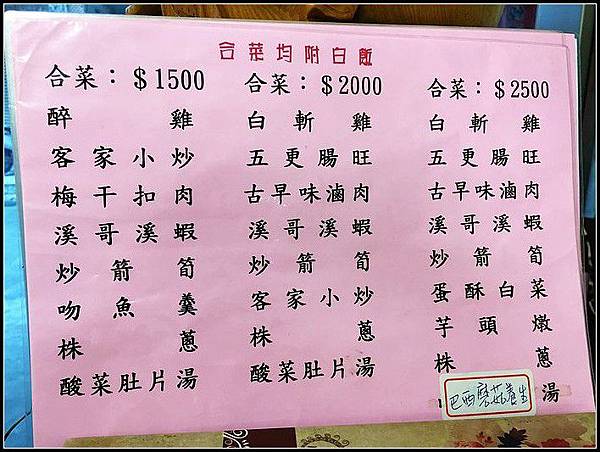 合菜均附白飯
合菜：$1500
醉雞
客家小炒
梅干扣肉
溪哥溪蝦
炒箭筍
吻魚羹
株蔥
酸菜肚片湯
合菜：$2000
白斬雞
五更腸旺
古早味滷肉
溪哥溪蝦
炒箭筍
客家小炒
株蔥
酸菜肚片湯
合菜：$2500
白斬雞
五更腸旺
古早味滷肉
溪哥溪蝦
炒箭筍
蛋酥白菜
芋頭燉
株蔥
巴西磨菇養生湯